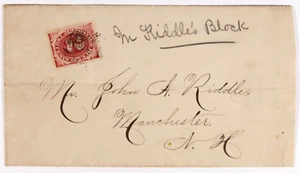 In Kiddle's Block
Mr. John A. Riddle,
Manchester,
N. H.